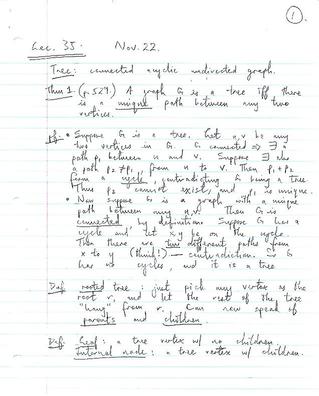 1.
Lec. 35. Nov. 22.
Tree: connected acyclic undirected graph.
Thm 1 (p. 529.) A graph G is a tree iff there
is a unique path between any two
vertices.
pf: • Suppose G is a tree. Let u, v be any
two vertices in G. G connected ⇒ ∃ a
path p₁ between u and v. Suppose ∃ also
a path p₂ ≠ p₁, from u to v. Then p₁ + p₂
form a cycle, contradicting G being a tree.
Thus p₂ cannot exist, and p₁ is unique.
• Now suppose G is a graph with a unique
path between any u, v. Then G is
connected by definition. Suppose G has a
cycle and let x, y be on the cycle.
Then there are two different paths from
x to y (think!) — contradiction. So G
has no cycles, and it is a tree
Def rooted tree: just pick any vertex as the
root r, and let the rest of the tree
"hang" from r. Can now speak of
parents and children.
Def: leaf: a tree vertex w/ no children.
Internal node: a tree vertex w/ children.